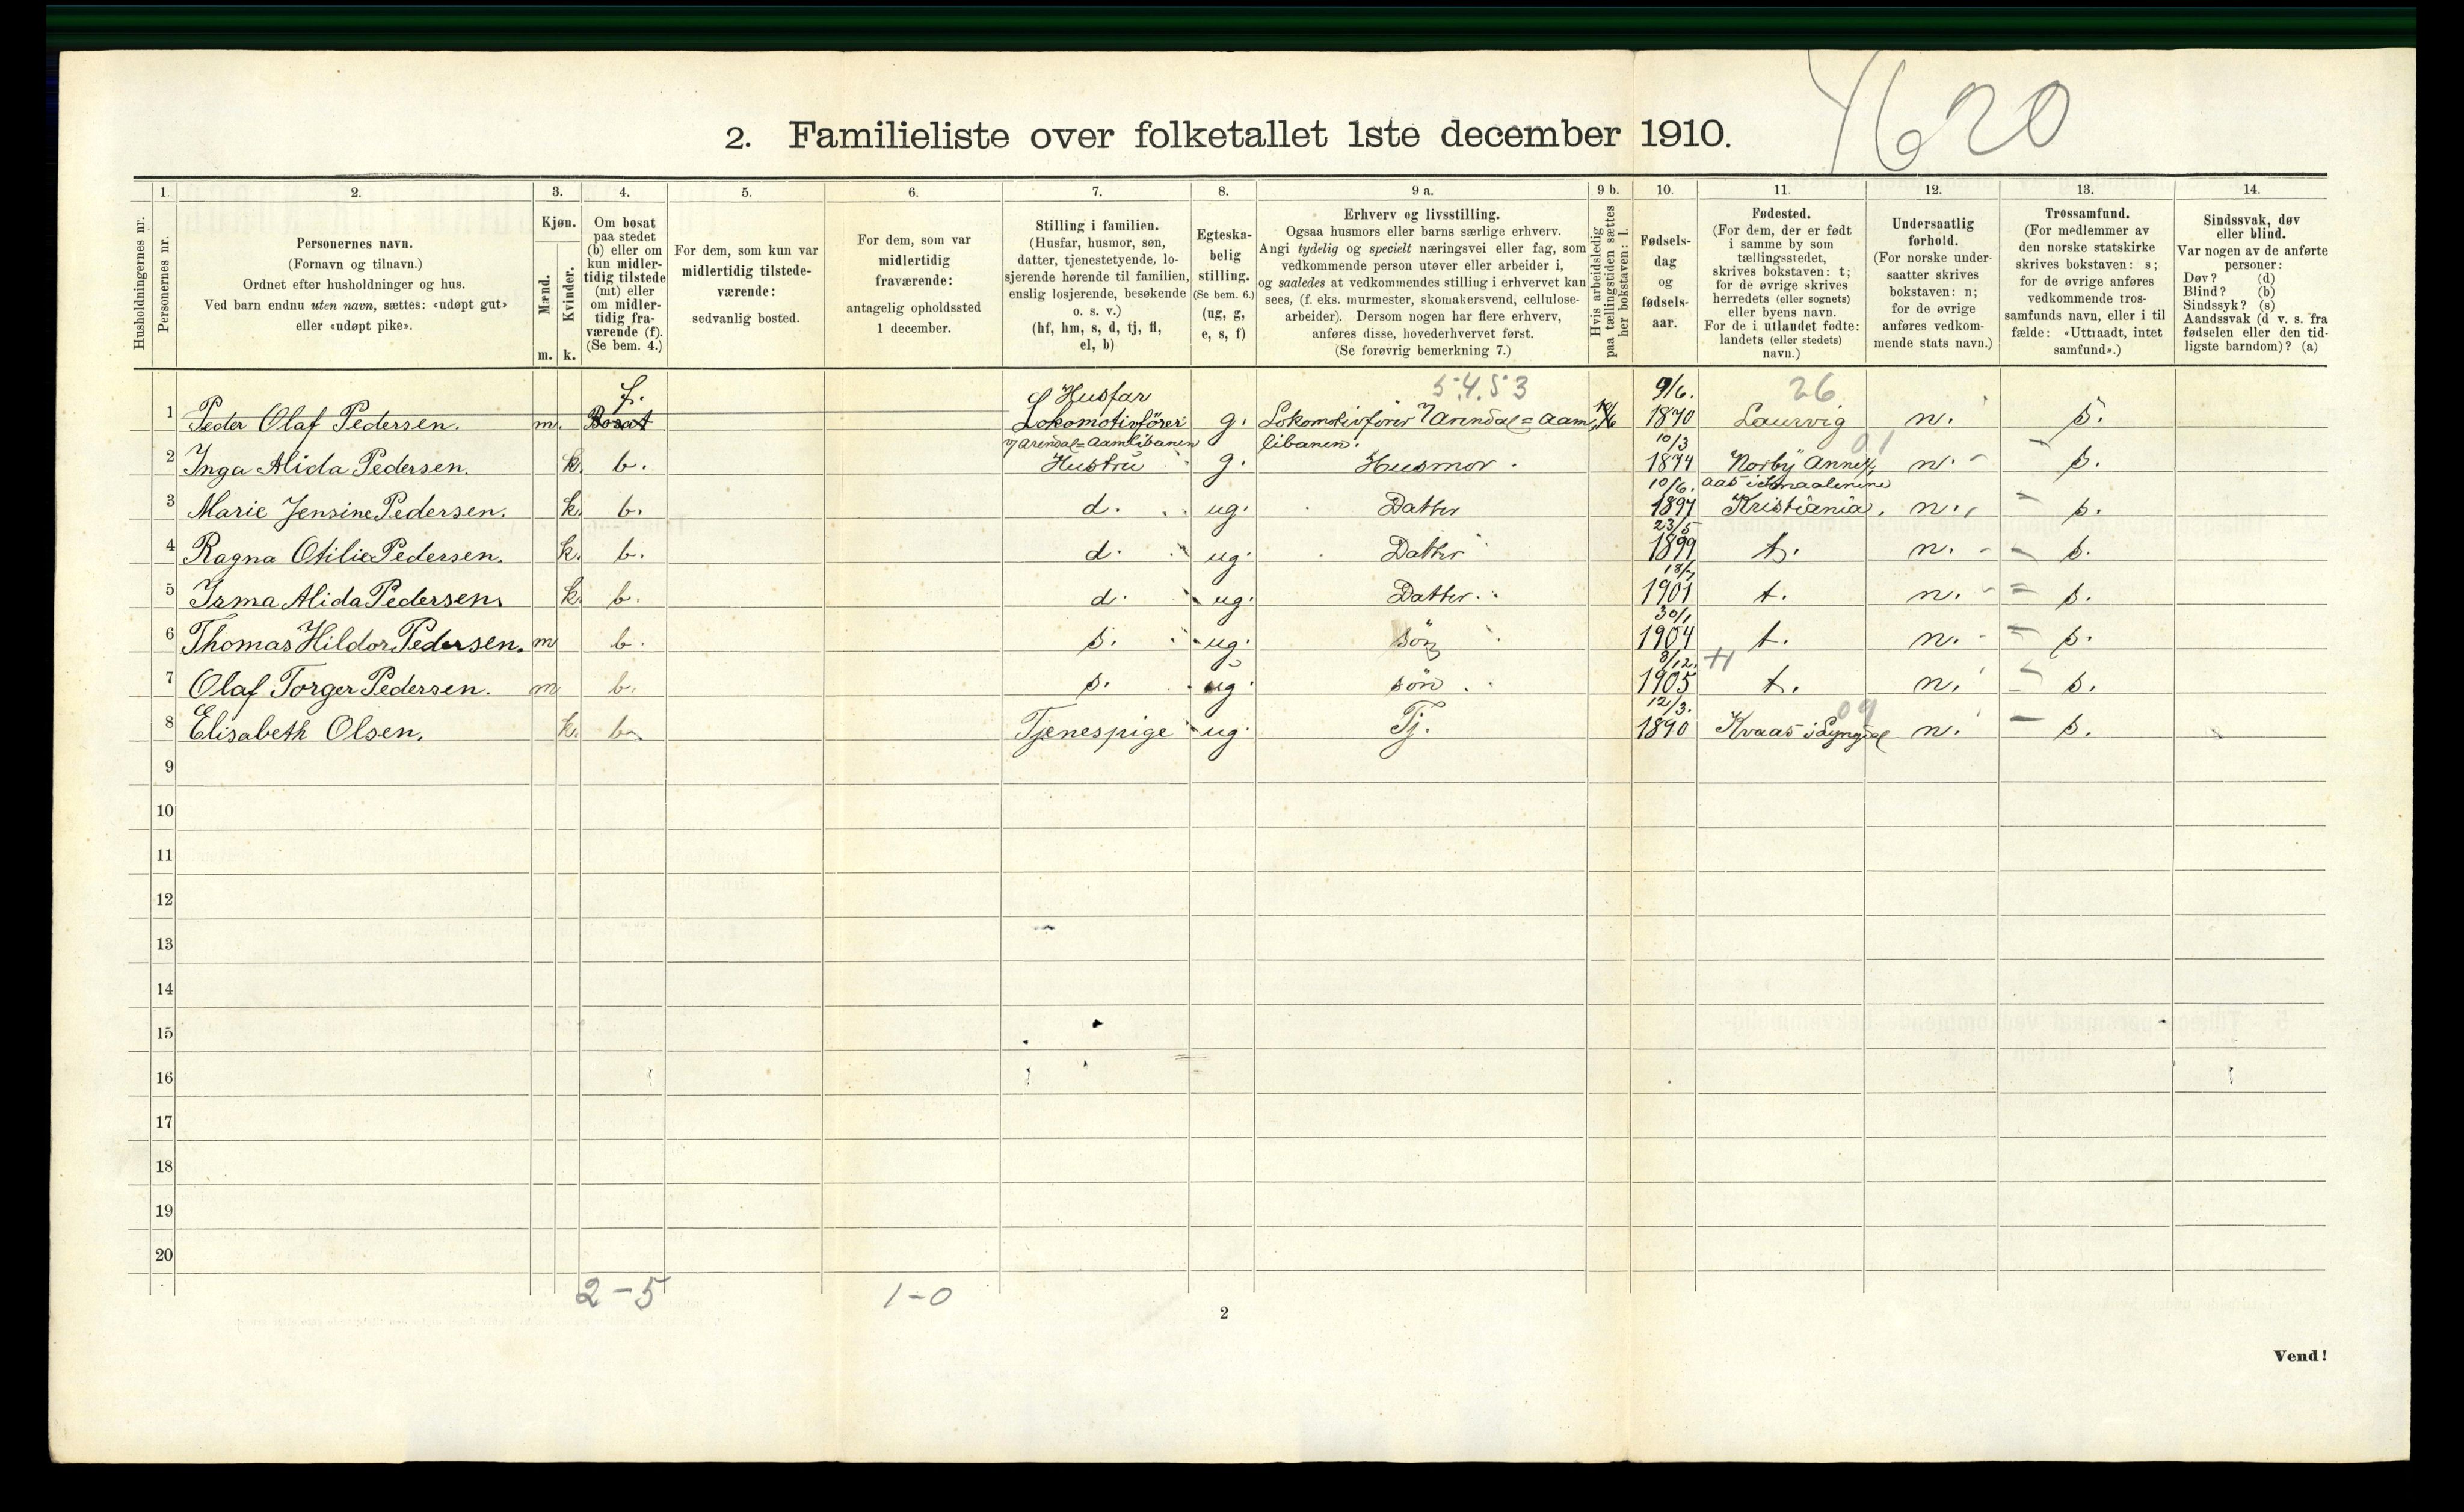 4620
2. Familieliste over folketallet 1ste december 1910.
Husholdningernes nr.
1.
Personernes nr.
2.
Personernes navn.
(Fornavn og tilnavn.)
Ordnet efter husholdninger og hus.
Ved barn endnu uten navn, sættes: «udøpt gut»
eller «udøpt pike».
3.
Kjøn.
Mænd.
Kvinder.
m.
k.
4.
Om bosat
paa stedet
(b) eller om
kun midler-
tidig tilstede
(mt) eller
om midler-
tidig fra-
værende (f).
(Se bem. 4.)
5.
For dem, som kun var
midlertidig tilstede-
værende:
sedvanlig bosted.
6.
For dem, som var
midlertidig
fraværende:
antagelig opholdssted
1 december.
7.
Stilling i familien.
(Husfar, husmor, søn,
datter, tjenestetyende, lo-
sjerende hørende til familien,
enslig losjerende, besøkende
o. s. v.)
(hf, hm, s, d, tj, fl,
el, b)
8.
Egteska-
belig
stilling.
(Se bem. 6.)
(ug, g,
e, s, f)
9 a.
Erhverv og livsstilling.
Ogsaa husmors eller barns særlige erhverv.
Angi tydelig og specielt næringsvei eller fag, som
vedkommende person utøver eller arbeider i,
og saaledes at vedkommendes stilling i erhvervet kan
sees, (f. eks. murmester, skomakersvend, cellulose-
arbeider). Dersom nogen har flere erhverv,
anføres disse, hovederhvervet først.
(Se forøvrig bemerkning 7.)
9 b.
Hvis arbeidsledig
paa tællingstiden sættes
her bokstaven: l.
10.
Fødsels-
dag
og
fødsels-
aar.
11.
Fødested.
(For dem, der er født
i samme by som
tællingsstedet,
skrives bokstaven: t;
for de øvrige skrives
herredets (eller sognets)
eller byens navn.
For de i utlandet fødte:
landets (eller stedets)
navn.)
12.
Undersaatlig
forhold.
(For norske under-
saatter skrives
bokstaven: n;
for de øvrige
anføres vedkom-
mende stats navn.)
13.
Trossamfund.
(For medlemmer av
den norske statskirke
skrives bokstaven: s;
for de øvrige anføres
vedkommende tros-
samfunds navn, eller i til
fælde: «Uttraadt, intet
samfund».)
14.
Sindssvak, døv
eller blind.
Var nogen av de anførte
personer:
Døv? (d)
Blind? (b)
Sindssyk? (s)
Aandssvak (d. v. s. fra
fødselen eller den tid-
ligste barndom)? (a)
f. Husfar 5453 9/6. 26
1 Peder Olaf Pedersen. m. Bosat Lokomotivförer g. Lokomotivförer v/ Arendal=Aam 1870 Laurvig n. s.
v/ Arendal=Aamlibanen libanen. 10/3 01
2 Inga Alida Pedersen. k. b. Hustru g. Husmor. 1874 Norby Annex, n. - s.
10/6. aas i Smaalenene
3 Marie Jensine Pedersen. k. b. d. ug. Datter 1897 Kristiania. n. - s.
23/5
4 Ragna Otilie Pedersen. k. b. d. ug. Datter 1899 t. n. - s.
18/7
5 Irma Alida Pedersen. k. b. d. ug. Datter. 1901 t. n. - s.
30/1
6 Thomas Hildor Pedersen. m b. s. ug. sön 1904 t. n. - s.
8/12.
7 Olaf Torger Pedersen. m b. s. ug. sön. 1905 t. n. - s.
12/3. 09
8 Elisabeth Olsen. k. b. Tjenespige ug. Tj. 1890 Kvaas i Lyngdal n. - s.
9
10
11
12
13
14
15
16
17
18
19
20
2-5 1-0
2
Vend!